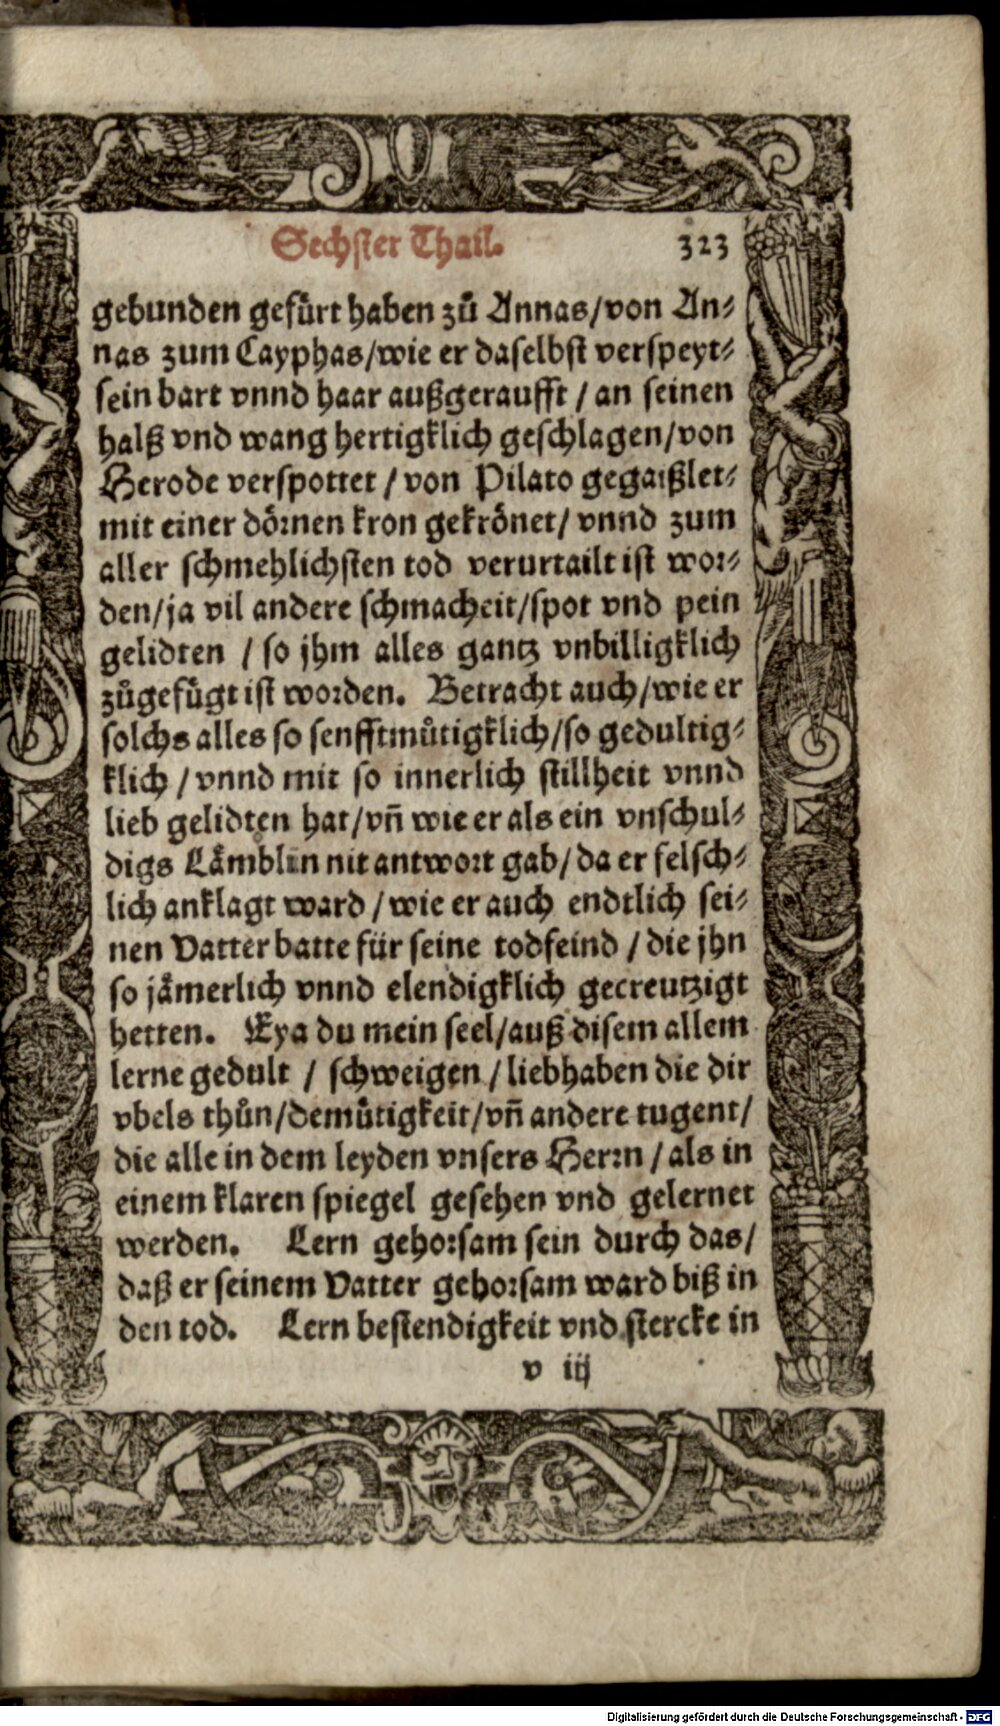 Sechster Thail. 323
gebunden gefürt haben zů Annas/von An-
nas zum Cayphas/wie er daselbst verspeyt-
sein bart vnnd haar außgeraufft / an seinen
halß vnd wang hertigklich geschlagen/von
Herode verspottet / von Pilato gegaißlet-
mit einer dörnen kron gekrönet/ vnnd zum
aller schmehlichsten tod verurtailt ist wor-
den/ja vil andere schmacheit/spot vnd pein
gelidten / so jhm alles gantz vnbilligklich
zůgefügt ist worden. Betracht auch/wie er
solchs alles so senfftmůtigklich/so gedultig-
klich / vnnd mit so innerlich stillheit vnnd
lieb gelidten hat/vñ wie er als ein vnschul-
digs Lämblin nit antwort gab/ da er felsch-
lich anklagt ward / wie er auch endtlich sei-
nen Vatter batte für seine todfeind / die jhn
so jämerlich vnnd elendigklich gecreutzigt
hetten. Eya du mein seel/auß disem allem
lerne gedult / schweigen / liebhaben die dir
vbels thůn/demůtigkeit/vñ andere tugent/
die alle in dem leyden vnsers Herrn / als in
einem klaren spiegel gesehen vnd gelernet
werden. Lern gehorsam sein durch das/
daß er seinem Vatter gehorsam ward biß in
den tod. Lern bestendigkeit vnd stercke in
v iij
Digitalisierung gefördert durch die Deutsche Forschungsgemeinschaft - DFG